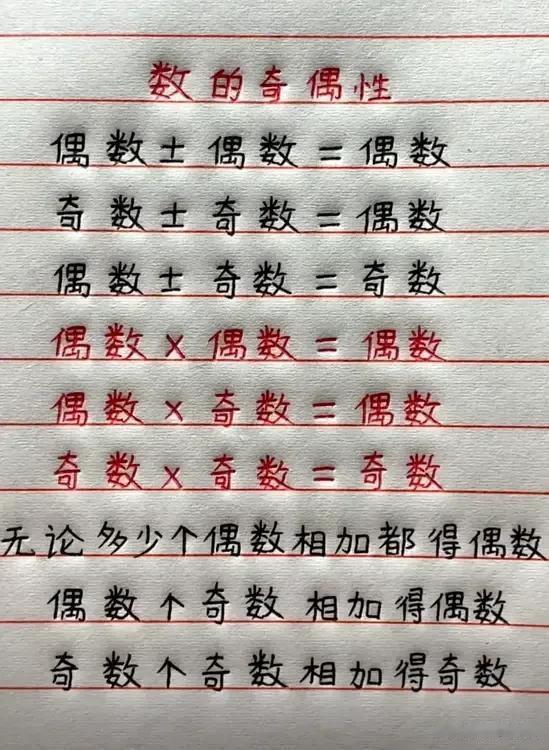 数的奇偶性
偶数±偶数=偶数
奇数±奇数=偶数
偶数±奇数=奇数
偶数×偶数=偶数
偶数×奇数=偶数
奇数×奇数=奇数
无论多少个偶数相加都得偶数
偶数个奇数相加得偶数
奇数个奇数相加得奇数